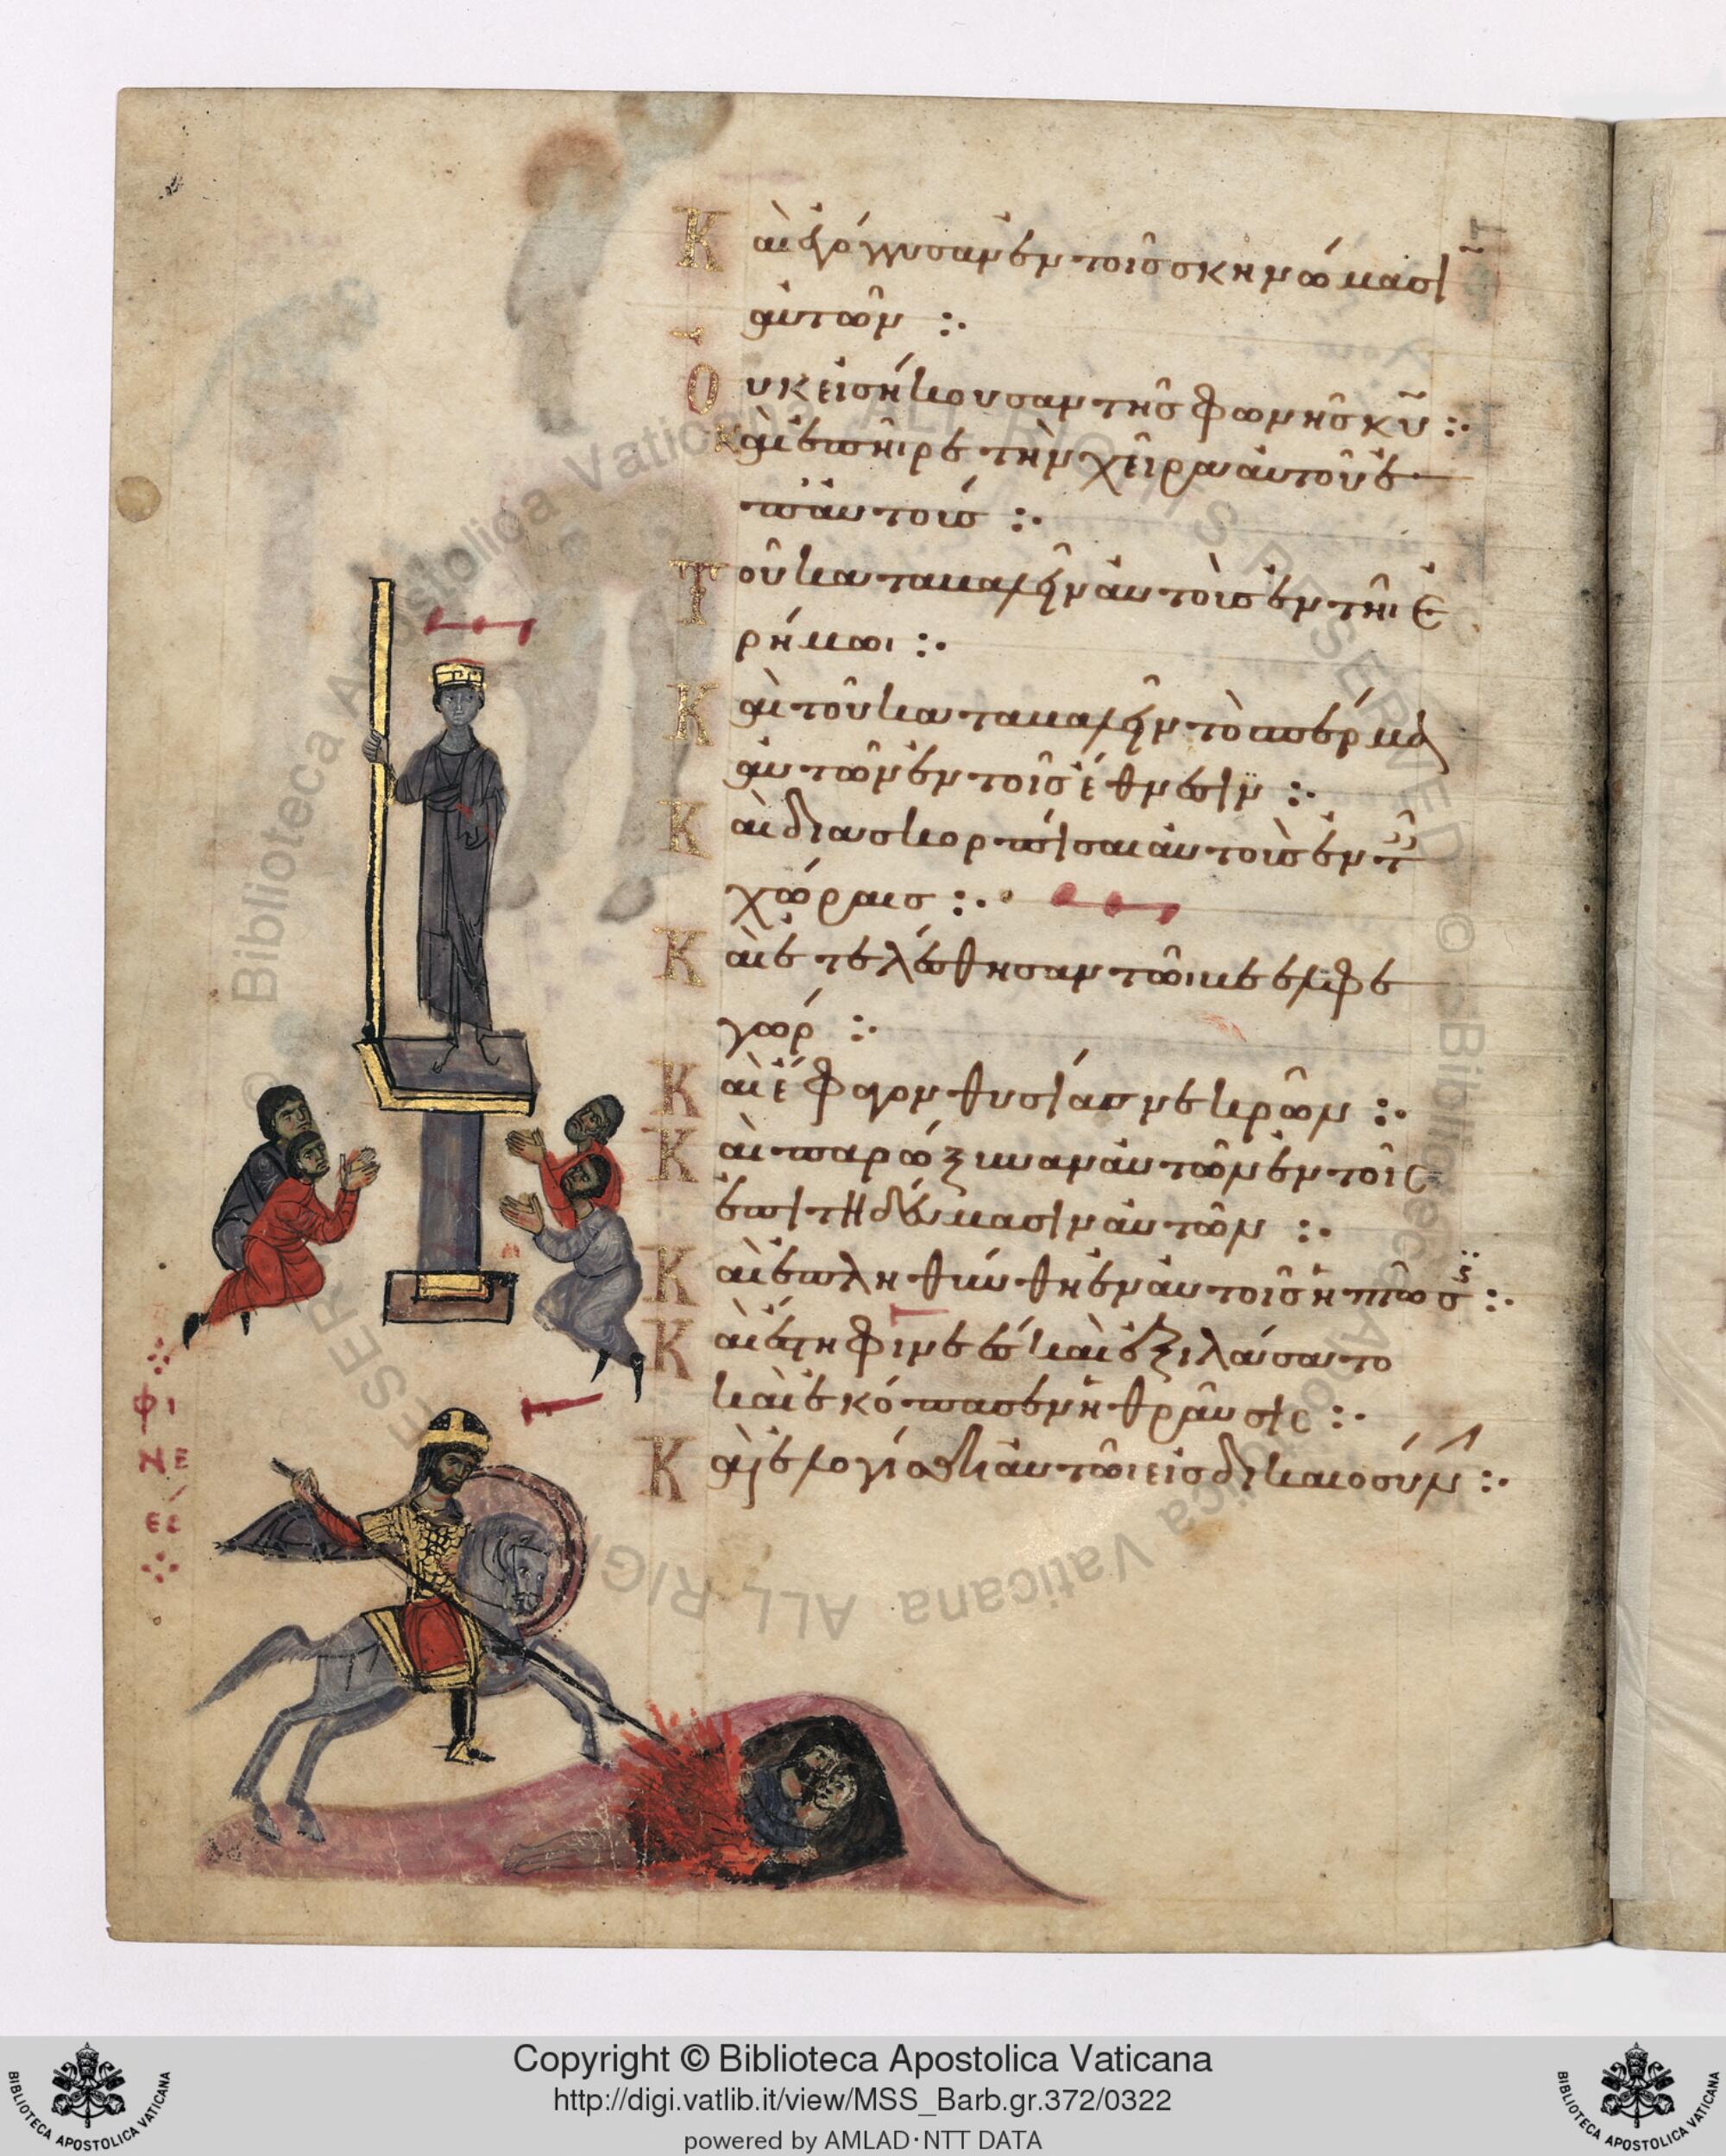 Καὶ ἐγόγγυσαν ἐν τοῖς σκηνώμασι
αὐτῶν :·
Οὐκ εἰσήκουσαν τῆς φωνῆς κ̅υ̅ :·
Καὶ ἐπῆιρε τὴν χεῖρα αὐτοῦ ἐ
π' αὐτοὺς :·
Τοῦ καταβαλεῖν αὐτοὺς ἐν τῆι ἐ
ρήμωι :·
Καὶ τοῦ καταβαλεῖν τὸ σπέρμα
αὐτῶν ἐν τοῖς ἔθνεσιν :·
Καὶ διασκορπίσαι αὐτοὺς ἐν τ
χώραις :·
Καὶ ἐτελέσθησαν τῶι βεελφε
γώρ :·
Καὶ ἔφαγον θυσίας νεκρῶν :·
Καὶ παρώξυναν αὐτὸν ἐν τοῖς
ἐπιτηδεύμασιν αὐτῶν :·
Καὶ ἐπληθύνθη ἐν αὐτοῖς ἡ πτῶσ :·
Καὶ ἔστη φινεὲς καὶ ἐξιλάσατο
καὶ ἐκόπασεν ἡ θραῦσις :·
Καὶ ἐλογίσθη αὐτῶι εἰς δικαιοσύν :·
ΦΙ
ΝΕ
ΕΣ
© Biblioteca Apostolica Vaticana ALL RIGHTS RESERVED © Biblioteca Apostolica Vaticana ALL RIGHTS RESERVED
Copyright © Biblioteca Apostolica Vaticana
http://digi.vatlib.it/view/MSS_Barb.gr.372/0322
powered by AMLAD·NTT DATA
BIBLIOTECA APOSTOLICA VATICANA
BIBLIOTECA APOSTOLICA VATICANA